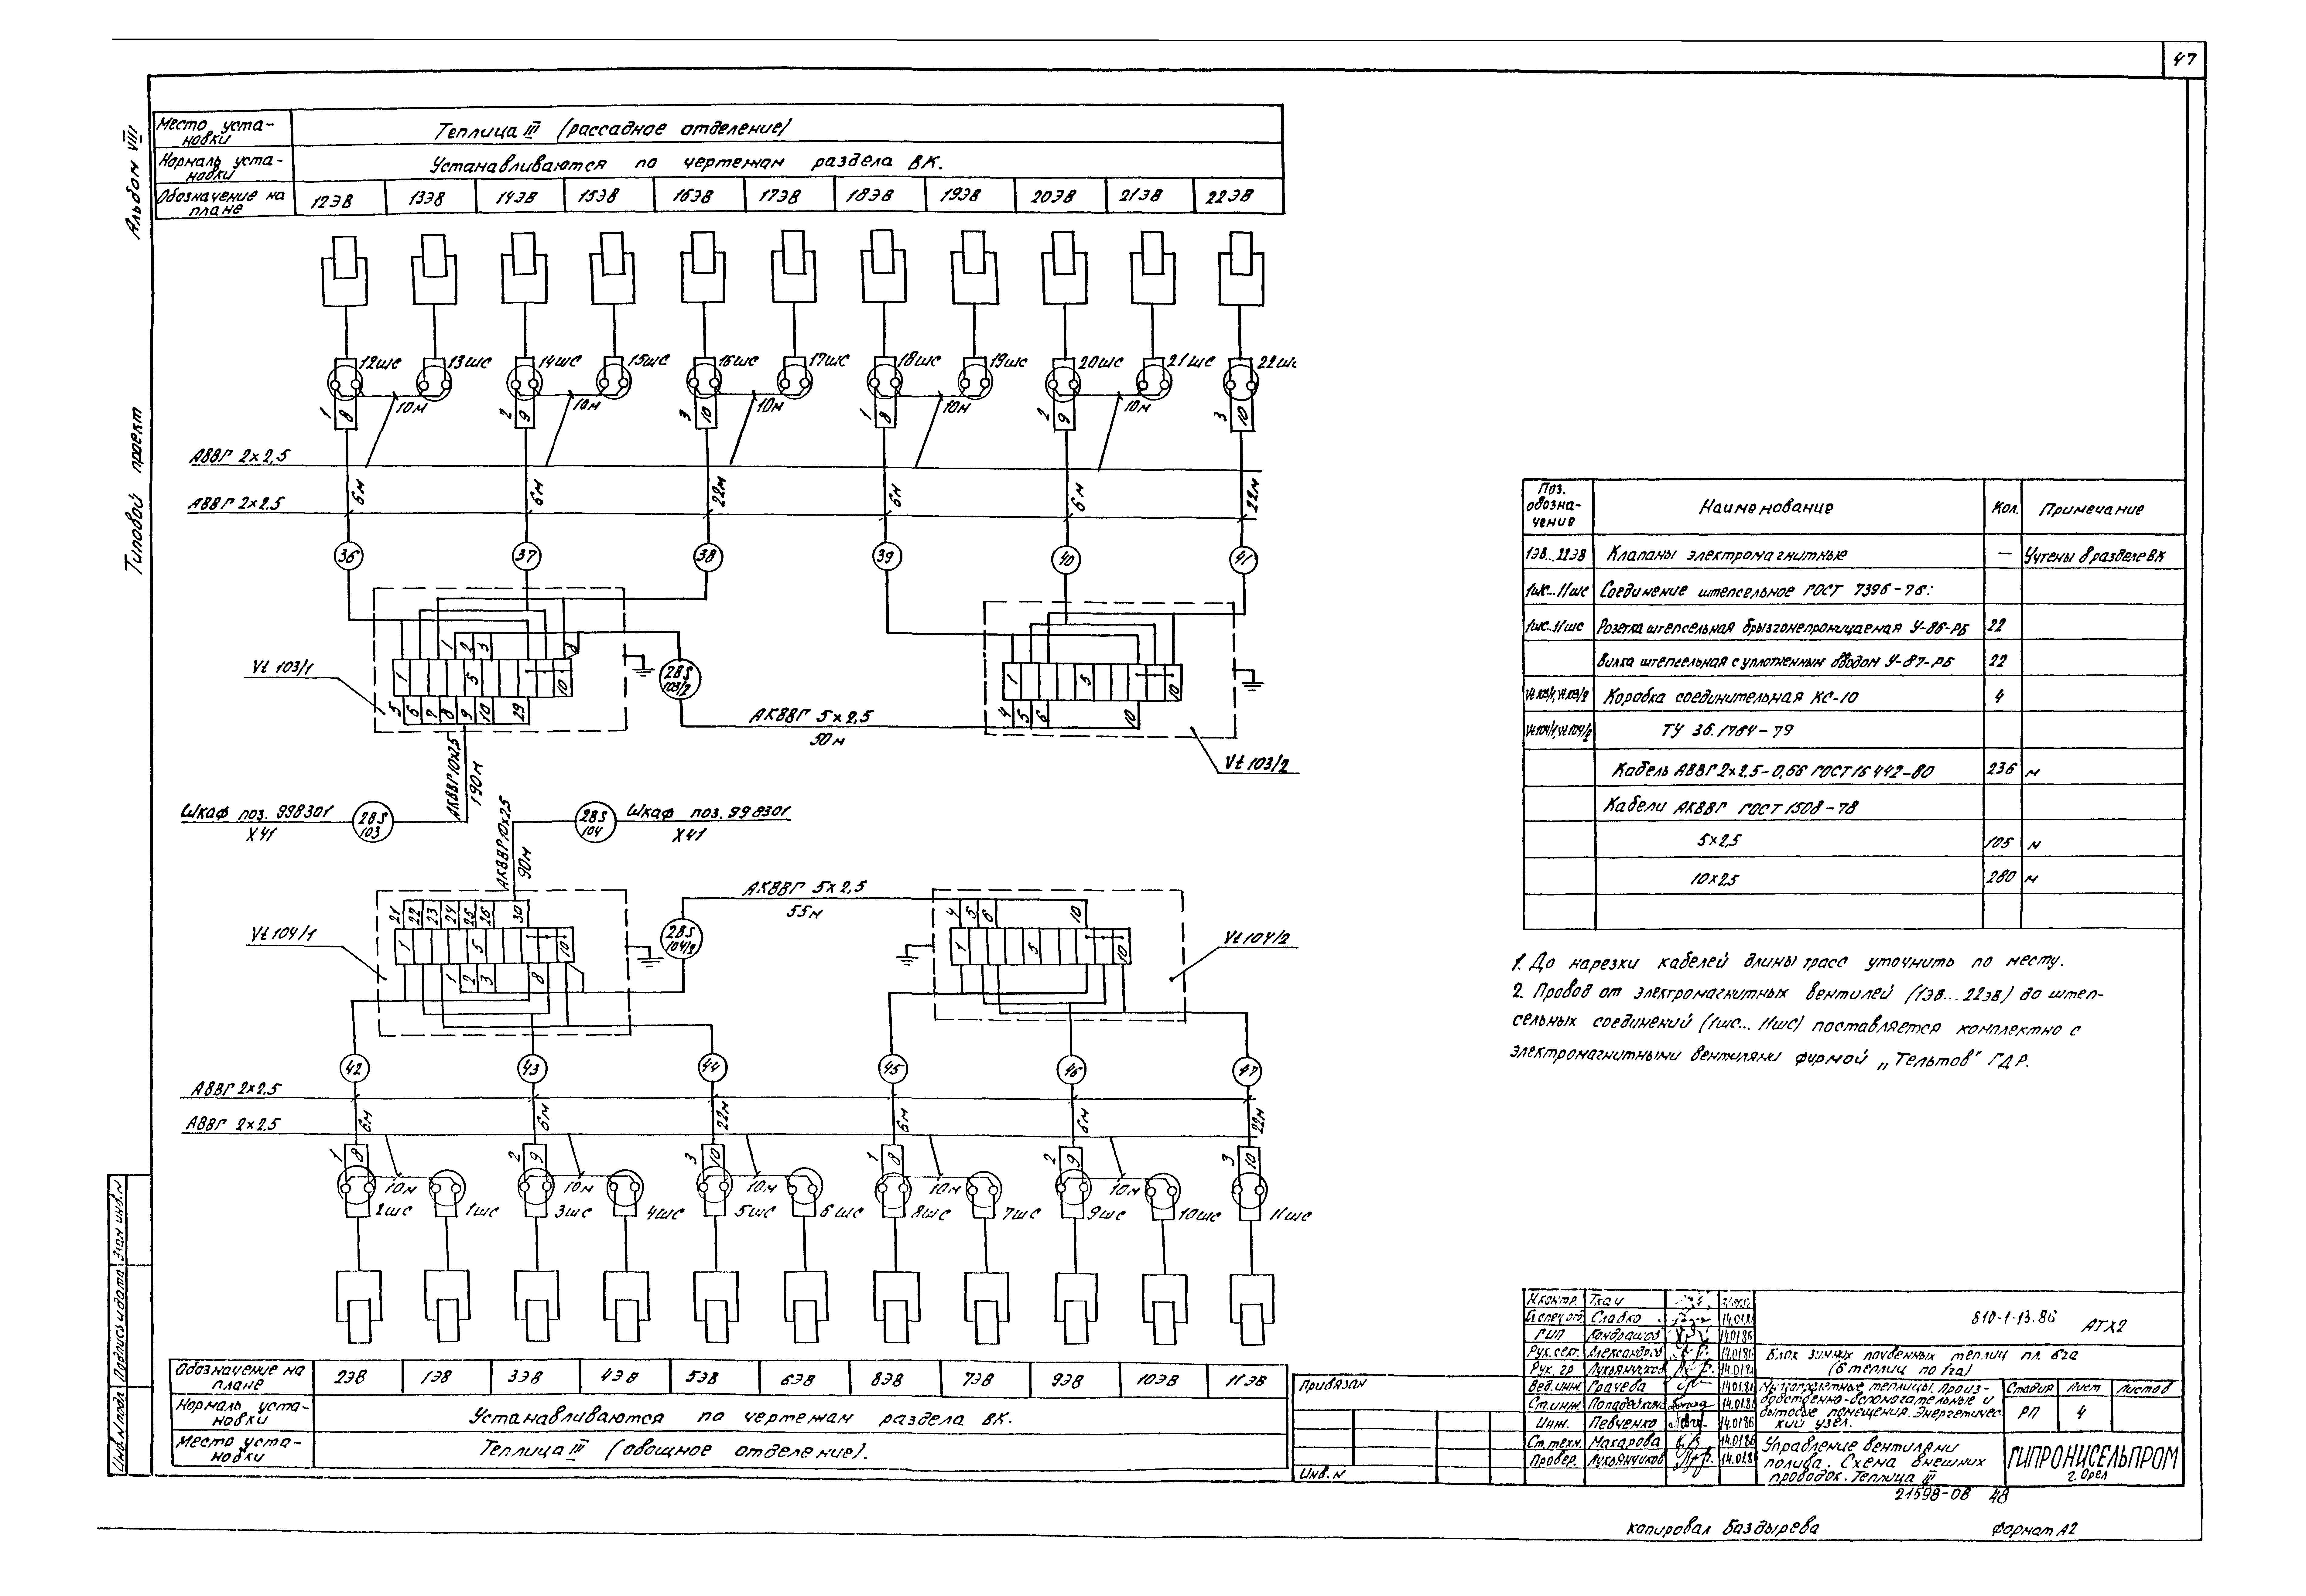 47
Альбом VIII
Типовой проект
Место уста-
новки
Теплица III (рассадное отделение)
Нормаль уста-
новки
Устанавливаются по чертежам раздела ВК.
Обозначение на
плане
12ЭВ 13ЭВ 14ЭВ 15ЭВ 16ЭВ 17ЭВ 18ЭВ 19ЭВ 20ЭВ 21ЭВ 22ЭВ
12шс 13шс 14шс 15шс 16шс 17шс 18шс 19шс 20шс 21шс 22шс
10м 10м 10м 10м 10м
1 8 2 9 3 10 1 8 2 9 3 10
АВВГ 2×2,5
6м 6м 22м 6м 6м 22м
АВВГ 2×2.5
36 37 38 39 40 41
1 2 3 8
Vt 103/1
1 5 10
5 6 7 8 9 10 29
28S
103/2
АКВВГ 5×2,5
50м
1 5 10
4 5 6 10
Vt 103/2
АКВВГ 10×2.5
190м
Шкаф поз. 998301
Х41
28S
103
28S
104
Шкаф поз. 998301
Х41
АКВВГ 10×2.5
90м
21 22 23 24 25 26 30
Vt 104/1
1 5 10
1 2 3 8
28S
104/2
АКВВГ 5×2,5
55м
4 5 6 10
1 5 10
Vt 104/2
42 43 44 45 46 47
АВВГ 2×2.5
6м 6м 22м 6м 6м 22м
АВВГ 2×2.5
1 8 2 9 3 10 1 8 2 9 3 10
10м 10м 10м 10м 10м
2шс 1шс 3шс 4шс 5шс 6шс 8шс 7шс 9шс 10шс 11шс
Обозначение на
плане
2ЭВ 1ЭВ 3ЭВ 4ЭВ 5ЭВ 6ЭВ 8ЭВ 7ЭВ 9ЭВ 10ЭВ 11ЭВ
Нормаль уста-
новки
Устанавливаются по чертежам раздела ВК.
Место уста-
новки
Теплица III (овощное отделение).
Поз.
обозна-
чение
Наименование
Кол.
Примечание
1ЭВ...22ЭВ Клапаны электромагнитные — Учтены в разделе ВК
1шс...11шс Соединение штепсельное ГОСТ 7396-76:
1шс...11шс Розетка штепсельная брызгонепроницаемая У-86-РБ 22
Вилка штепсельная с уплотненным вводом У-87-РБ 22
Vt 103/1, Vt 103/2 Коробка соединительная КС-10 4
Vt 104/1, Vt 104/2 ТУ 36.1764-79
Кабель АВВГ 2×2.5-0,66 ГОСТ 16442-80 236 м
Кабели АКВВГ ГОСТ 1508-78
5×2,5 105 м
10×2,5 280 м
1. До нарезки кабелей длины трасс уточнить по месту.
2. Провод от электромагнитных вентилей (1эв...22эв) до штеп-
сельных соединений (1шс...11шс) поставляется комплектно с
электромагнитными вентилями фирмой „Тельтов" ГДР.
Н.контр. Ткач
Гл.спец.от. Сладко 14.01.86
ГИП Кондрашов 14.01.86
Рук.сект. Александров 14.01.86
Рук. гр Лукьянчиков 14.01.86
Вед.инж. Грачева 14.01.86
Ст.инж. 14.01.86
Инж. Певченко 14.01.86
Ст.техн. Макарова 14.01.86
Провер. Лукьянчиков 14.01.86
810-1-13.86 АТХ2
Блок зимних почвенных теплиц пл. 6га
(6 теплиц по 1га)
теплицы. Произ-
водственно-вспомогательные и
бытовые помещения. Энергетичес-
кий узел.
Стадия Лист Листов
РП 4
Управление вентилями
полива. Схема внешних
проводок. Теплица III
ГИПРОНИСЕЛЬПРОМ
г. Орел
Привязан
Инв. N
Инв. N подл. Подпись и дата Взам инв. N
21598-08 48
Копировал Баздырева
Формат А2